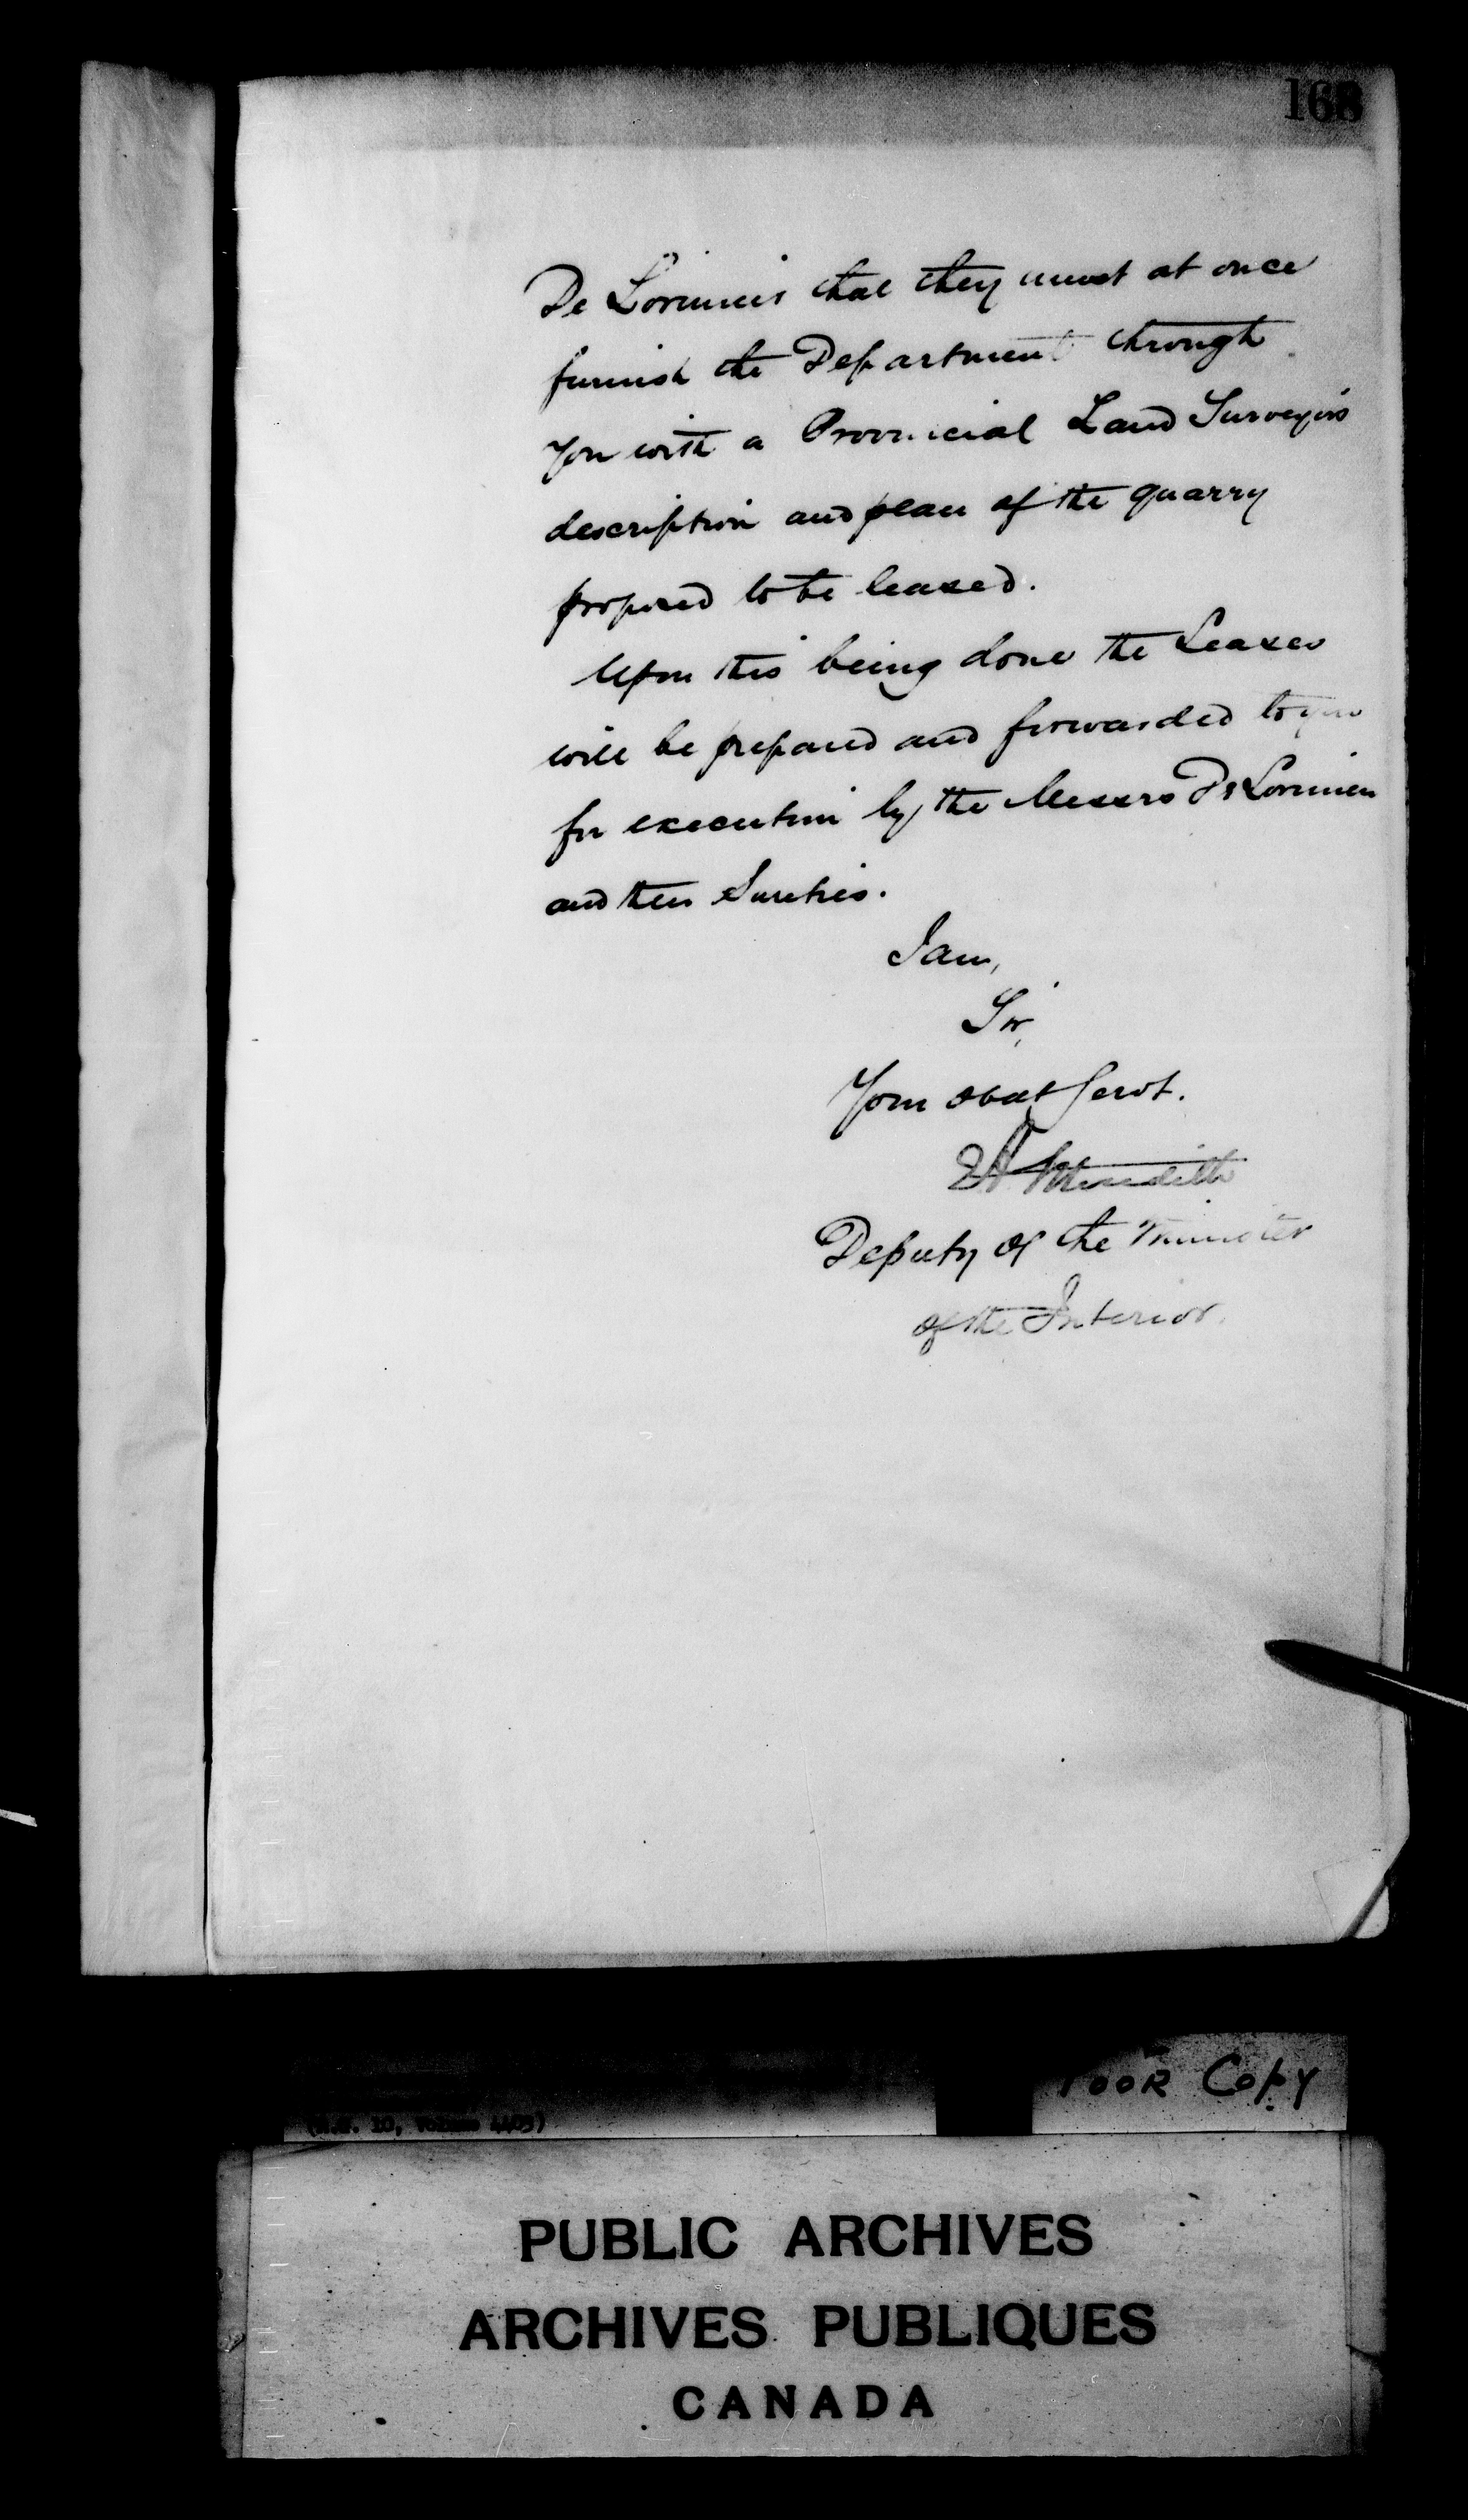 168
De Lorimiers that they must at once
furnish the Department through
you with a Provincial Land Surveyors
description and plan of the quarry
proposed to be leased.
Upon this being done the Leases
will be prepared and forwarded to you
for execution by the Messrs De Lorimier
and their Sureties.
I am,
Sir,
Your obdt Servt.
EA Meredith
Deputy of the Minister
of the Interior.
POOR COPY
(R.G. 10, Volume 4403)
PUBLIC ARCHIVES
ARCHIVES PUBLIQUES
CANADA